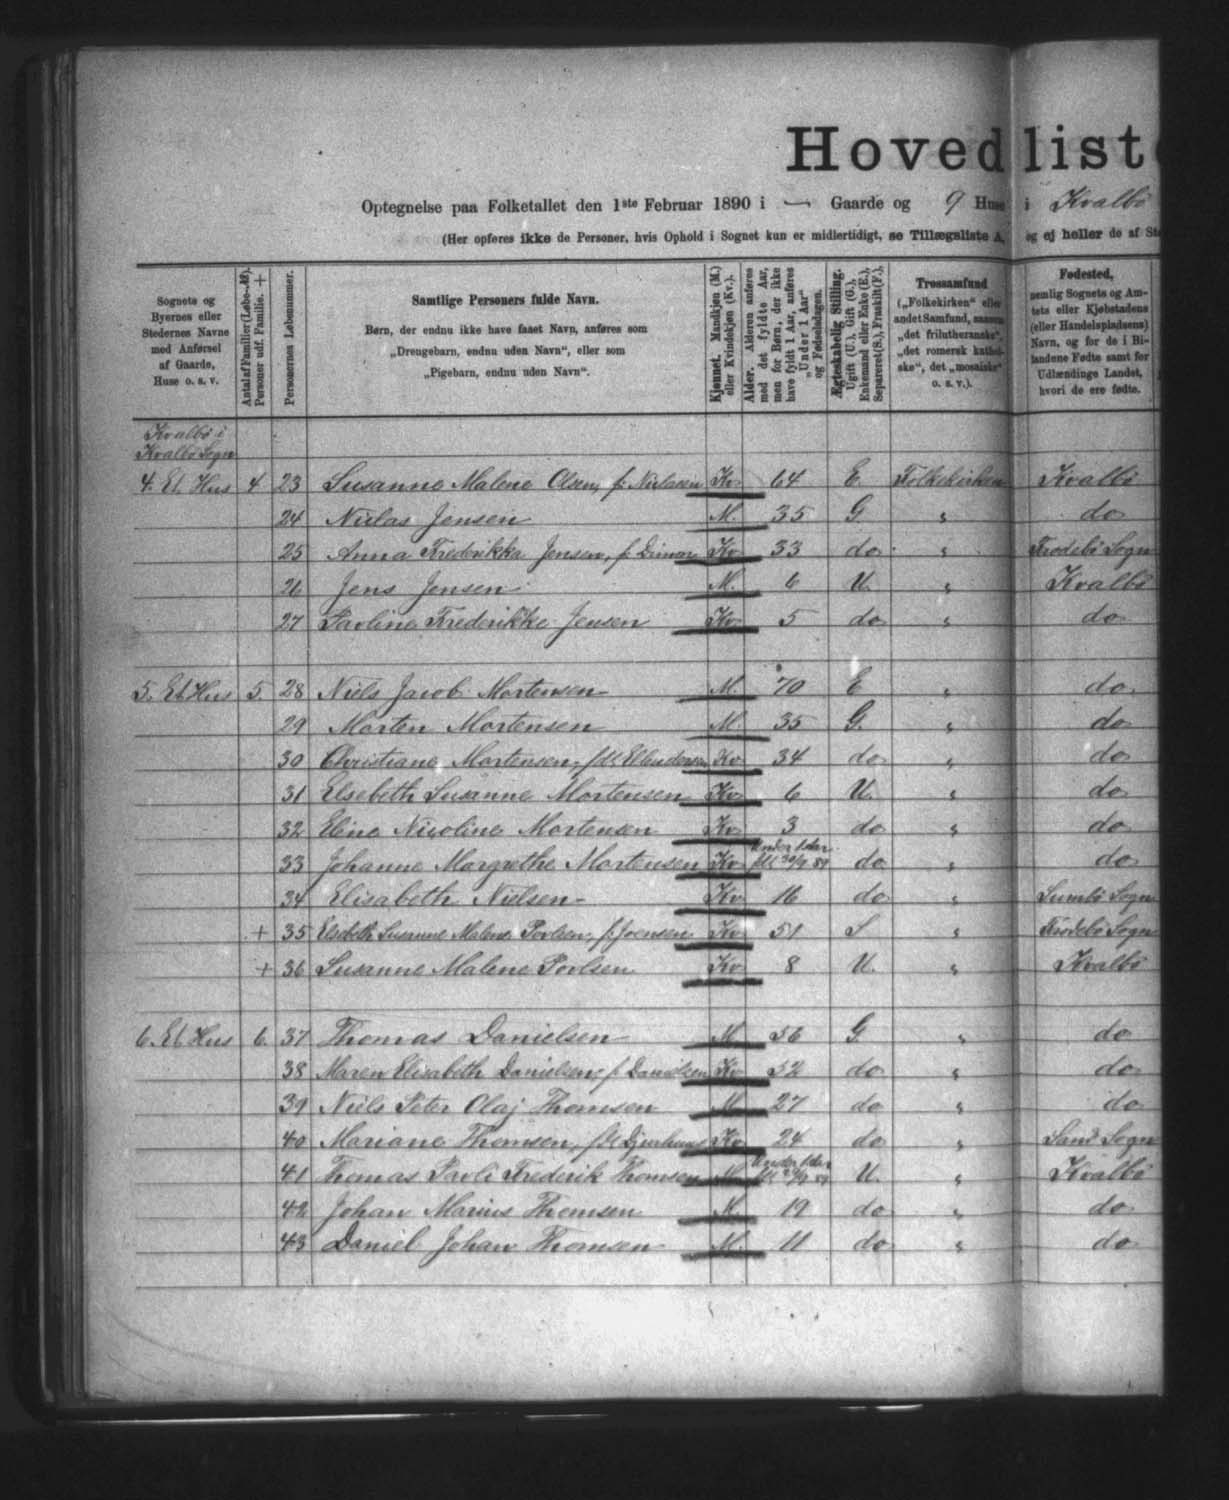 Hovedliste
Optegnelse paa Folketallet den 1ste Februar 1890 i — Gaarde og 9 Huse i Kvalbö
(Her opføres ikke de Personer, hvis Ophold i Sognet kun er midlertidigt, se Tillægsliste A, og ej heller de af
Sognets og Byernes eller Stedernes Navne med Anførsel af Gaarde, Huse o. s. v.
Antal af Familier (Løbe-№). Personer udf. Familie. +
Personernes Løbenummer.
Samtlige Personers fulde Navn.
Børn, der endnu ikke have faaet Navn, anføres som
„Drengebarn, endnu uden Navn“, eller som
„Pigebarn, endnu uden Navn“.
Kjønnet. Mandkjøn (M.) eller Kvindekjøn (Kv.).
Alder. Alderen anføres med det fyldte Aar, men for Børn, der ikke have fyldt 1 Aar, anføres „Under 1 Aar“ og Fødselsdagen.
Ægteskabelig Stilling. Ugift (U.), Gift (G.), Enkemand eller Enke (E.), Separeret (S.), Fraskilt (F.).
Trossamfund („Folkekirken“ eller andet Samfund, saasom „det frilutheranske“, „det romersk katholske“, det „mosaiske“ o. s. v.).
Fødested, nemlig Sognets og Amtets eller Kjøbstadens (eller Handelspladsens) Navn, og for de i Bilandene Fødte samt for Udlændinge Landet, hvori de ere fødte.
Kvalbö i
Kvalbö Sogn
4. Et Hus 4 23 Susanne Malene Olsen, f. Niclasen Kv 64 E. Folkekirken Kvalbö
24 Niclas Jensen M. 35 G. " do
25 Anna Frederikka Jensen, f. Kv 33 do " Frodebö Sogn
26 Jens Jensen M. 6 U. " Kvalbö
27 Pavline Frederikke Jensen Kv 5 do " do
5. Et Hus 5. 28 Niels Jacob Mortensen M. 70 E " do
29 Morten Mortensen M. 35 G. " do
30 Christiane Mortensen, Kv 34 do " do
31 Elsebeth Susanne Mortensen Kv 6 U. " do
32 Eline Nicoline Mortensen Kv 3 do " do
33 Johanne Margrethe Mortensen Kv Under 1 Aar do " do
34 Elisabeth Nielsen Kv 16 do " Sumbö Sogn
+ 35 Elsebeth Susanne Malene Povlsen, f. Joensen Kv 51 S " Frodebö Sogn
+ 36 Susanne Malene Povlsen Kv 8 U. " Kvalbö
6. Et Hus 6. 37 Thomas Danielsen M 56 G " do
38 Maren Elisabeth Danielsen, f. Danielsen Kv 52 do " do
39 Niels Peter Olaj Thomsen M 27 do " do
40 Mariane Thomsen, Kv 24 do " Sand Sogn
41 Thomas Pavli Frederik Thomsen M. Under 1 Aar U. " Kvalbö
42 Johan Marius Thomsen M. 19 do " do
43 Daniel Johan Thomsen M. 11 do " do